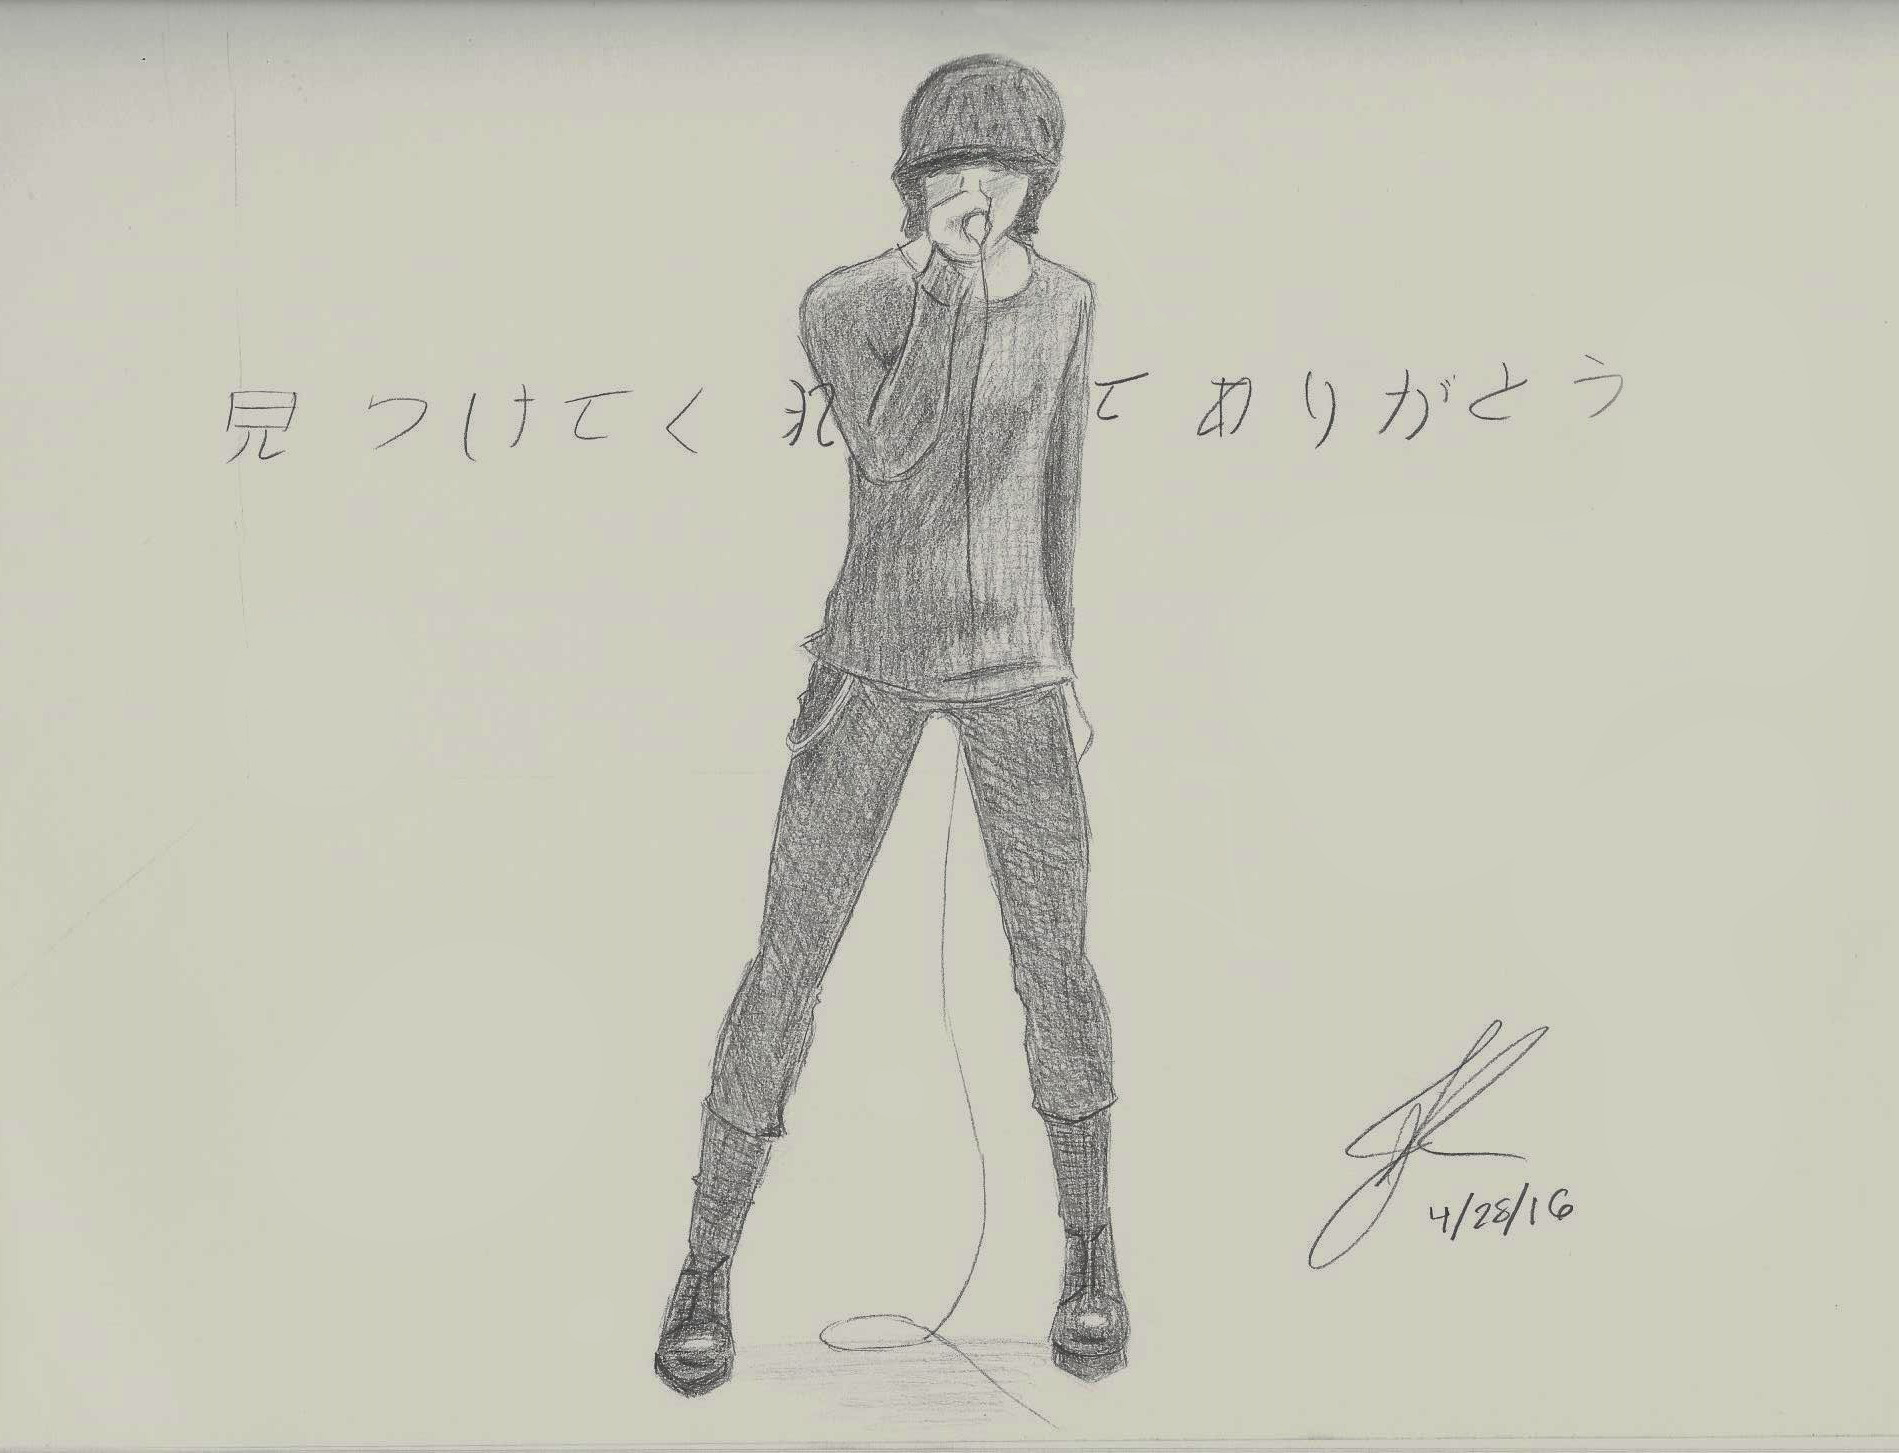 見つけてくれてありがとう
4/28/16